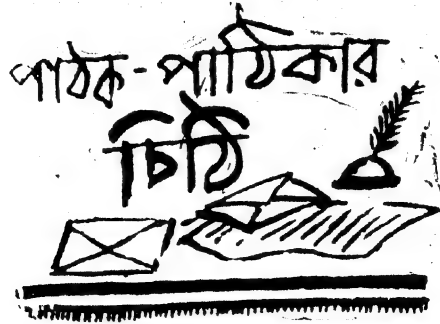 পাঠক-পাঠিকার
চিঠি